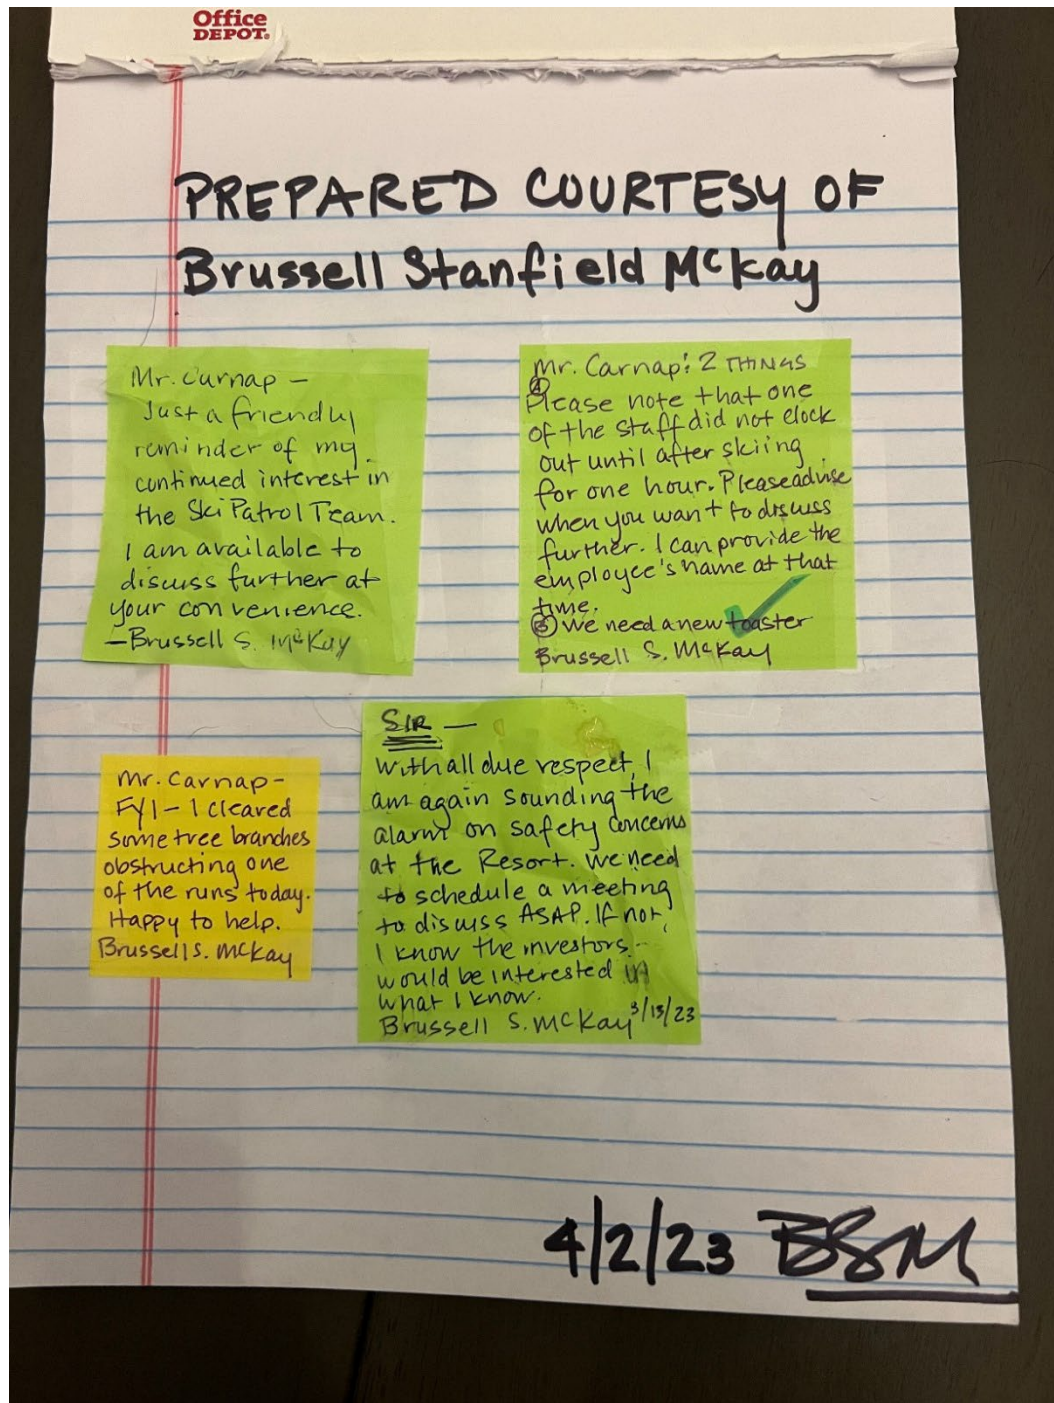 Office
DEPOT.
PREPARED COURTESY OF
Brussell Stanfield McKay
Mr. Carnap -
Just a friendly
reminder of my
continued interest in
the Ski Patrol Team.
I am available to
discuss further at
your convenience.
-Brussell S. McKay
Mr. Carnap: 2 THINGS
Ⓐ
Please note that one
of the staff did not clock
out until after skiing
for one hour. Please advise
when you want to discuss
further. I can provide the
employee's name at that
time.
Ⓑ We need a new toaster
Brussell S. McKay
Mr. Carnap-
FYI - I cleared
some tree branches
obstructing one
of the runs today.
Happy to help.
Brussell S. McKay
SIR —
With all due respect, I
am again sounding the
alarm on safety concerns
at the Resort. We need
to schedule a meeting
to discuss ASAP. If not,
I know the investors
would be interested in
what I know.
Brussell S. McKay 3/13/23
4/2/23 BSM